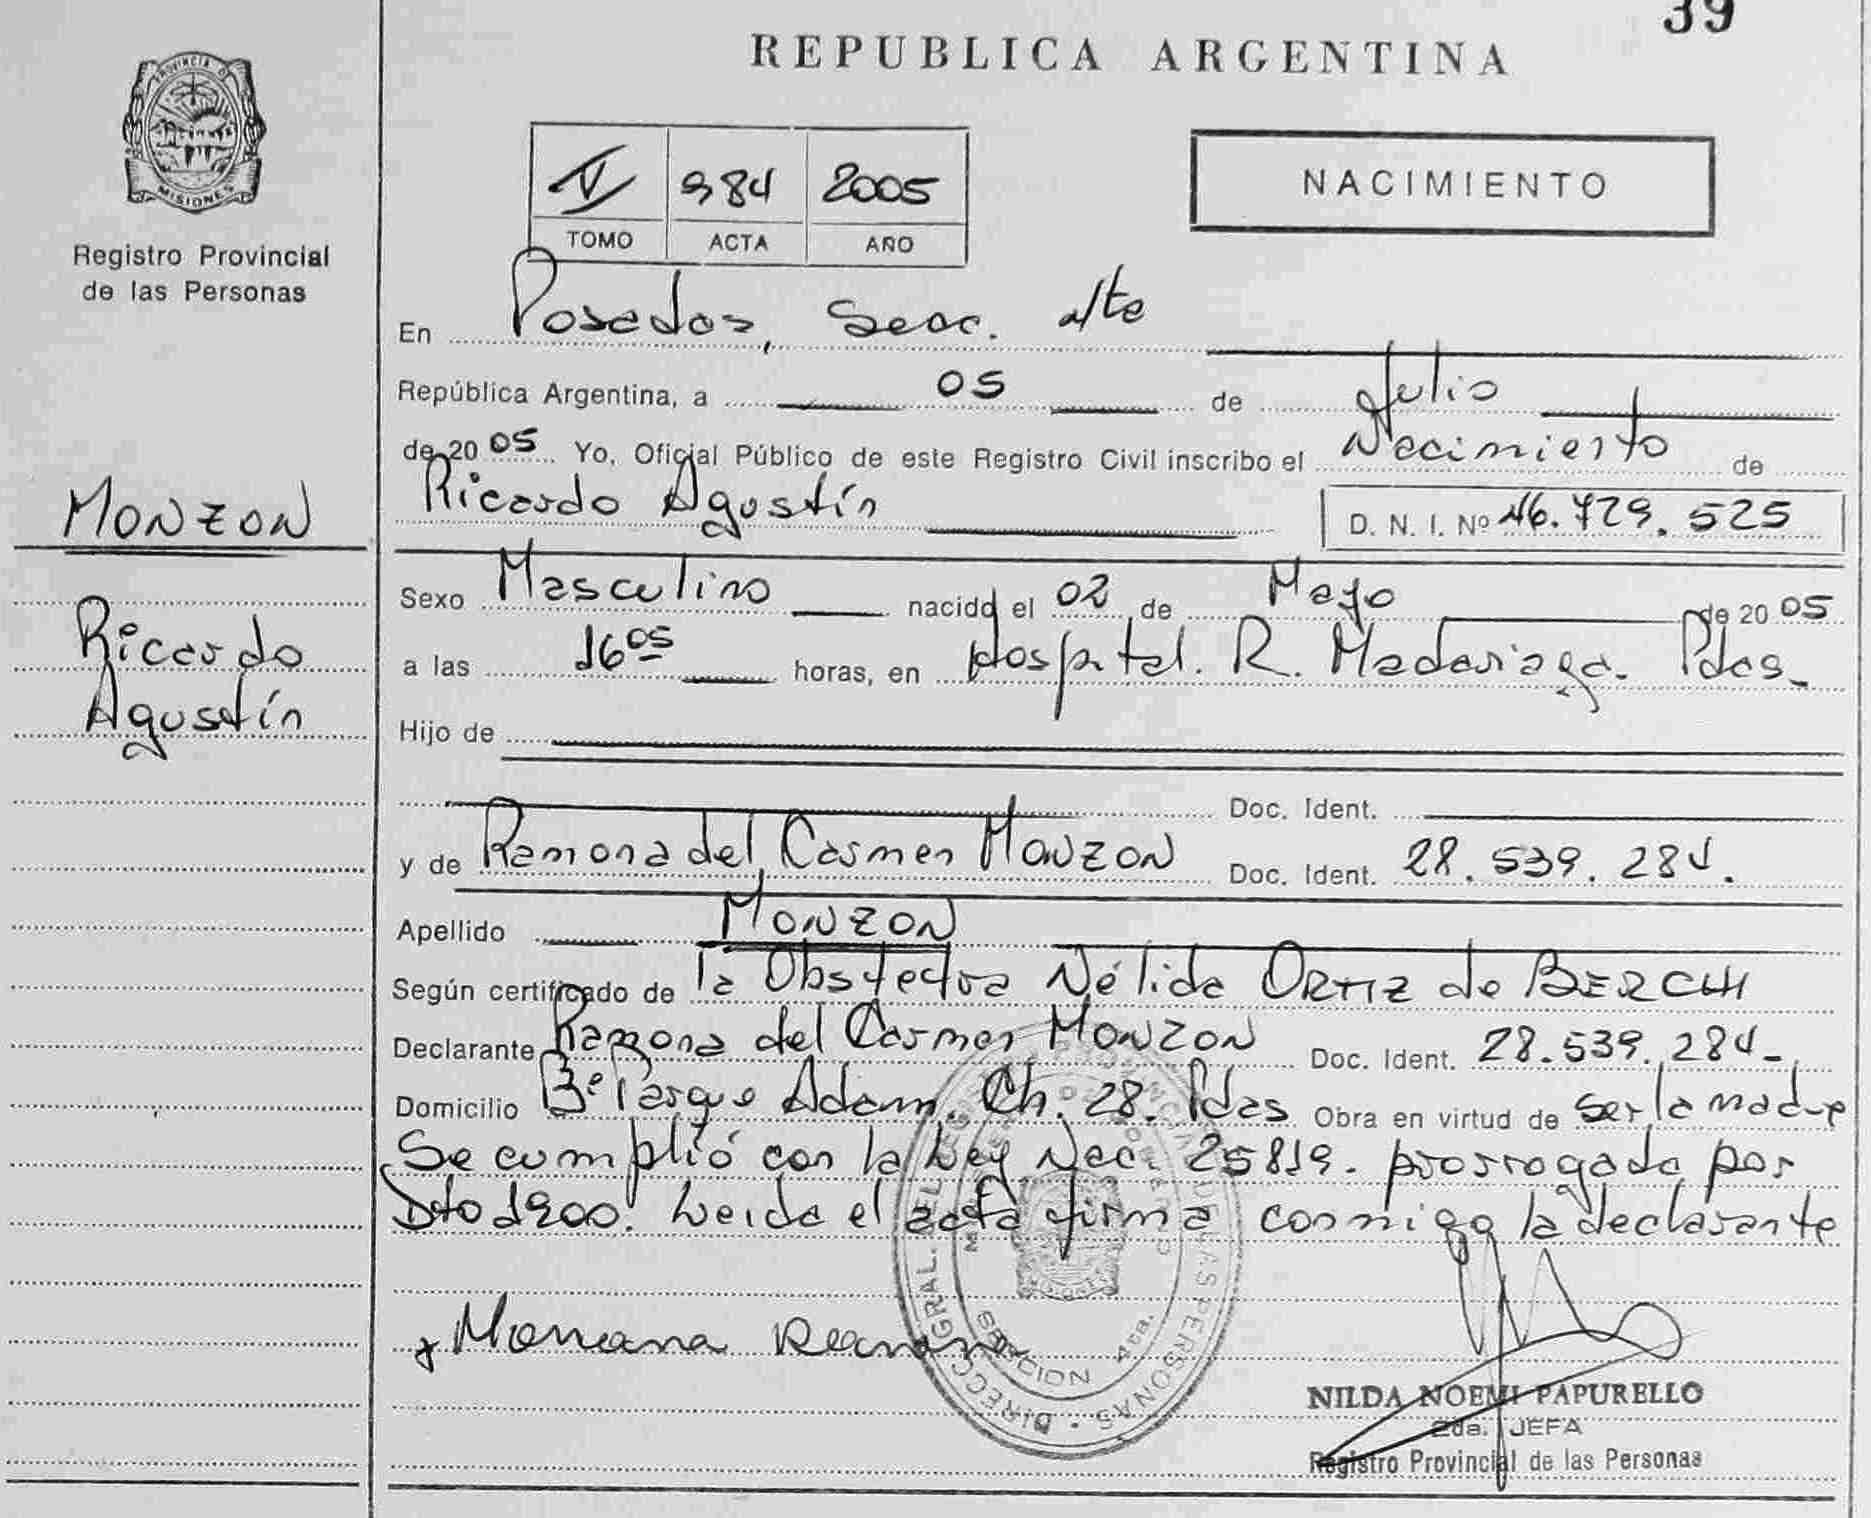 39
REPUBLICA ARGENTINA
PROVINCIA DE
MISIONES
Registro Provincial
de las Personas
IV 984 2005
TOMO ACTA AÑO
NACIMIENTO
En Posadas, Secc. 4te
República Argentina, a 05 de Julio
de 2005 Yo, Oficial Público de este Registro Civil inscribo el Nacimiento de
Ricardo Agustín D. N. I. Nº 46.729.525
MONZON
Ricardo
Agustín
Sexo Masculino nacido el 02 de Mayo de 2005
a las 16 05 horas, en Hospital. R. Madariaga. Pdas_
Hijo de
Doc. Ident.
y de Ramona del Carmen MONZON Doc. Ident. 28.539.284.
Apellido MONZON
Según certificado de la Obstetra Nélida ORTIZ de BERCHI
Declarante Ramona del Carmen MONZON Doc. Ident. 28.539.284_
Domicilio Bº Parque Adam. Ch. 28. Pdas Obra en virtud de ser la madre
Se cumplió con la Ley Nac. 25819. prorrogada por
Dto 1900. Leida el acta firma conmigo la declarante
DIRECC. GRAL. DEL REG. PROVINCIAL DE LAS PERSONAS
SECCION 4ta.
NILDA NOEMI PAPURELLO
2da. JEFA
Registro Provincial de las Personas